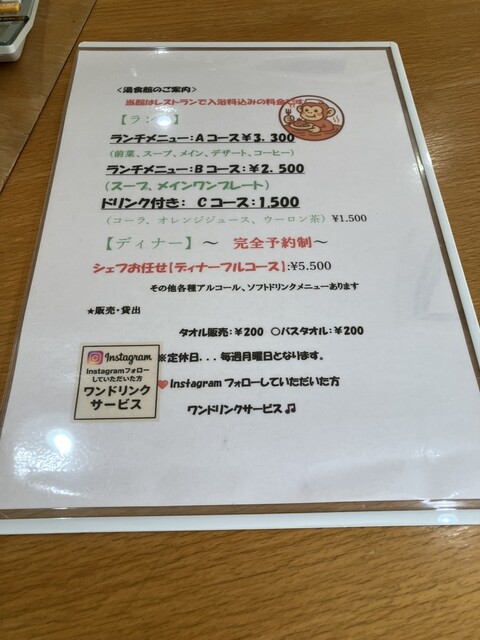 <湯食館のご案内>
当館はレストランで入浴料込みの料金です
【ランチ】
ランチメニュー:Aコース¥3,300
(前菜、スープ、メイン、デザート、コーヒー)
ランチメニュー:Bコース:¥2.500
(スープ、メインワンプレート)
ドリンク付き: Cコース:1,500
(コーラ、オレンジジュース、ウーロン茶)¥1.500
【ディナー】～ 完全予約制～
シェフお任せ【ディナーフルコース】:¥5.500
その他各種アルコール、ソフトドリンクメニューあります
★販売・貸出
タオル販売:¥200 ○バスタオル:¥200
※定休日...毎週月曜日となります。
❤Instagramフォローしていただいた方
ワンドリンクサービス♫
Instagram
Instagramフォロー
していただいた方
ワンドリンク
サービス